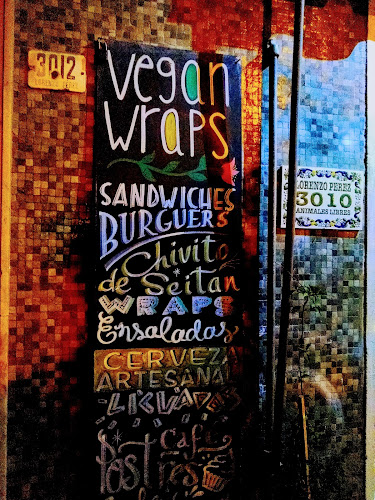 3012
vegan
wraps
SANDWICHES
BURGUERS
Chivito
de Seitan
WRAPS
Ensaladas
CERVEZA
ARTESANAL
LICUADOS
Café
Postres
LORENZO PEREZ
3010
ANIMALES LIBRES